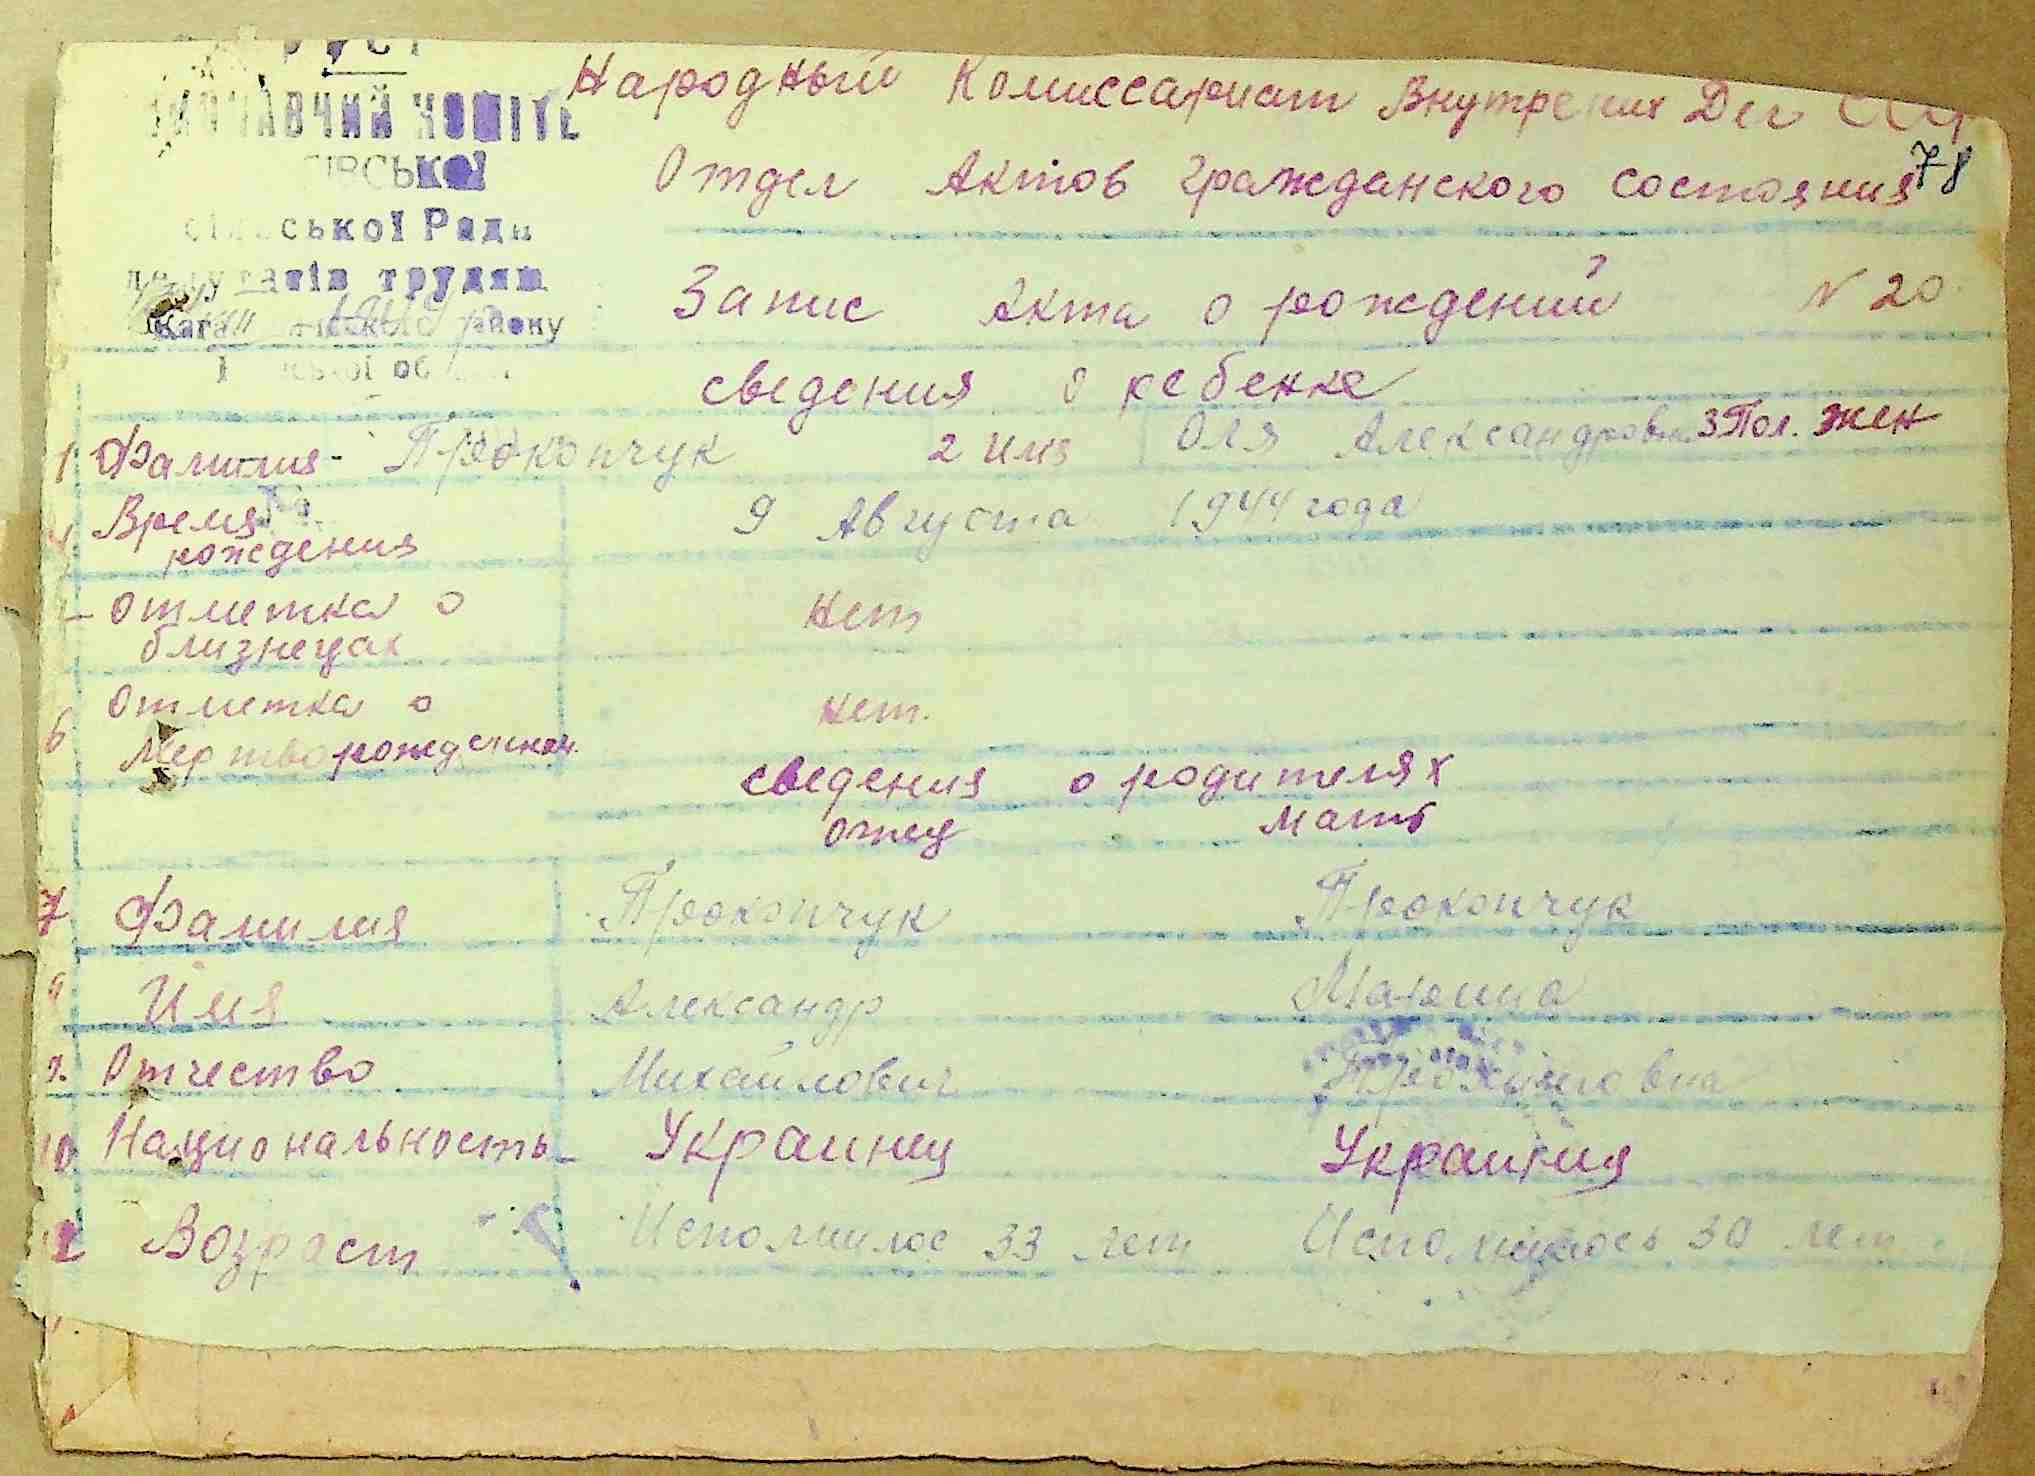 УССР
ВИКОНАВЧИЙ КОМІТЕТ
сільської Ради
депутатів трудящ.
району
Народный Комиссариат Внутрених Дел СССР
78
Отдел Актов гражданского состояния
Запис Акта о рождений N 20
сведения о ребенке
1 Фамилия - Прокопчук 2 имя Оля Александровна 3 Пол. жен
4 Время рождения 9 Августа 1944 года
Отметка о близнецах нет
6 Отметка о мертворожденном нет.
сведения о родителях
отец мать
7 Фамилия Прокопчук Прокопчук
Имя Александр
9. Отчество Михайлович
10 Национальность Украинец Украинця
Возраст Исполнилос 33 лет Исполнилось 30 лет.